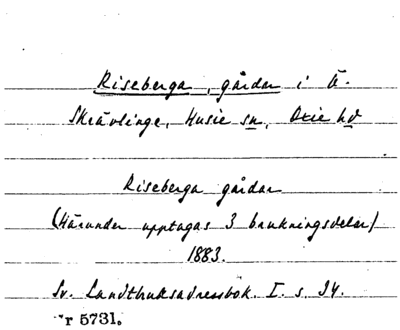 Riseberga, gårdar i Ö.
Skrävlinge, Husie sn, Oxie hd
Riseberga gårdar
(Härunder upptagas 3 brukningsdelar)
1883.
Sv. Landtbruksadressbok. I. s. 34.
nr 5731.